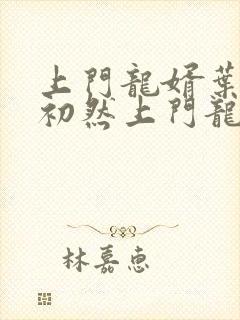 上門龍婿葉
初然上門龍
林嘉惠